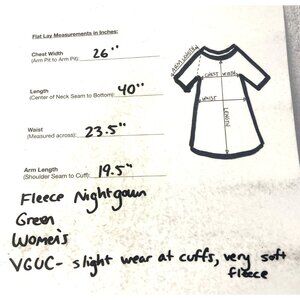 Flat Lay Measurements in Inches:
Chest Width
(Arm Pit to Arm Pit) 26"
Length
(Center of Neck Seam to Bottom): 40"
Waist
(Measured across): 23.5"
Arm Length
(Shoulder Seam to Cuff): 19.5"
ARM LENGTH
CHEST WIDTH
WAIST
LENGTH
Fleece Nightgown
Green
Women's
VGUC- slight wear at cuffs, very soft
fleece